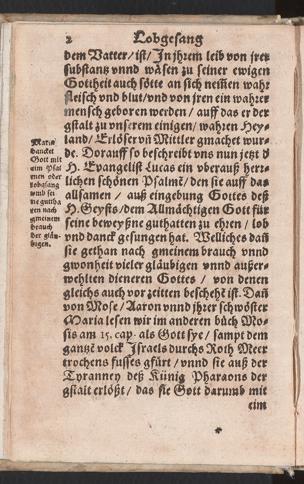 2 Lobgesang
dem Vatter / ist / In jhrem leib von jrer
substantz vnnd wäsen zu seiner ewigen
Gottheit auch sötte an sich nem̃en wahr
fleisch vnd blut / vnd von jren ein wahrer
mensch geboren werden / auff das er der
gstalt zu vnserem einigen / wahren Hey-
land / Erlöser vñ Mittler gmachet wur-
de. Dorauff so beschreibt vns nun jetzt d
H. Evangelist Lucas ein vberauß herr-
lichen schönen Psalmẽ / den sie auff das
allsamen / auß eingebung Gottes deß
H. Geysts / dem Allmächtigen Gott für
seine beweyßne guthatten zu ehren / lob
vnd danck gesungen hat. Welliches dañ
sie gethan nach gmeinem brauch vnnd
gwonheit vieler gläubigen vnnd außer-
wehlten dieneren Gottes / von denen
gleichs auch vor zeitten beschehẽ ist. Dañ
von Mose / Aaron vnnd jhrer schwöster
Maria lesen wir im anderen bůch Mo-
sis am 15. cap. als Gott sye / sampt dem
gantzẽ volck Israels durchs Roth Meer
trochens fusses gfürt / vnnd sie auß der
Tyranney deß Künig Pharaons der
gstalt erlößt / das sie Gott darumb mit
eim
Maria
dancket
Gott mit
eim Psal
men oder
lobgsang
vmb sei
ne guttha
ten nach
gmeinem
brauch
der gläu-
bigen.